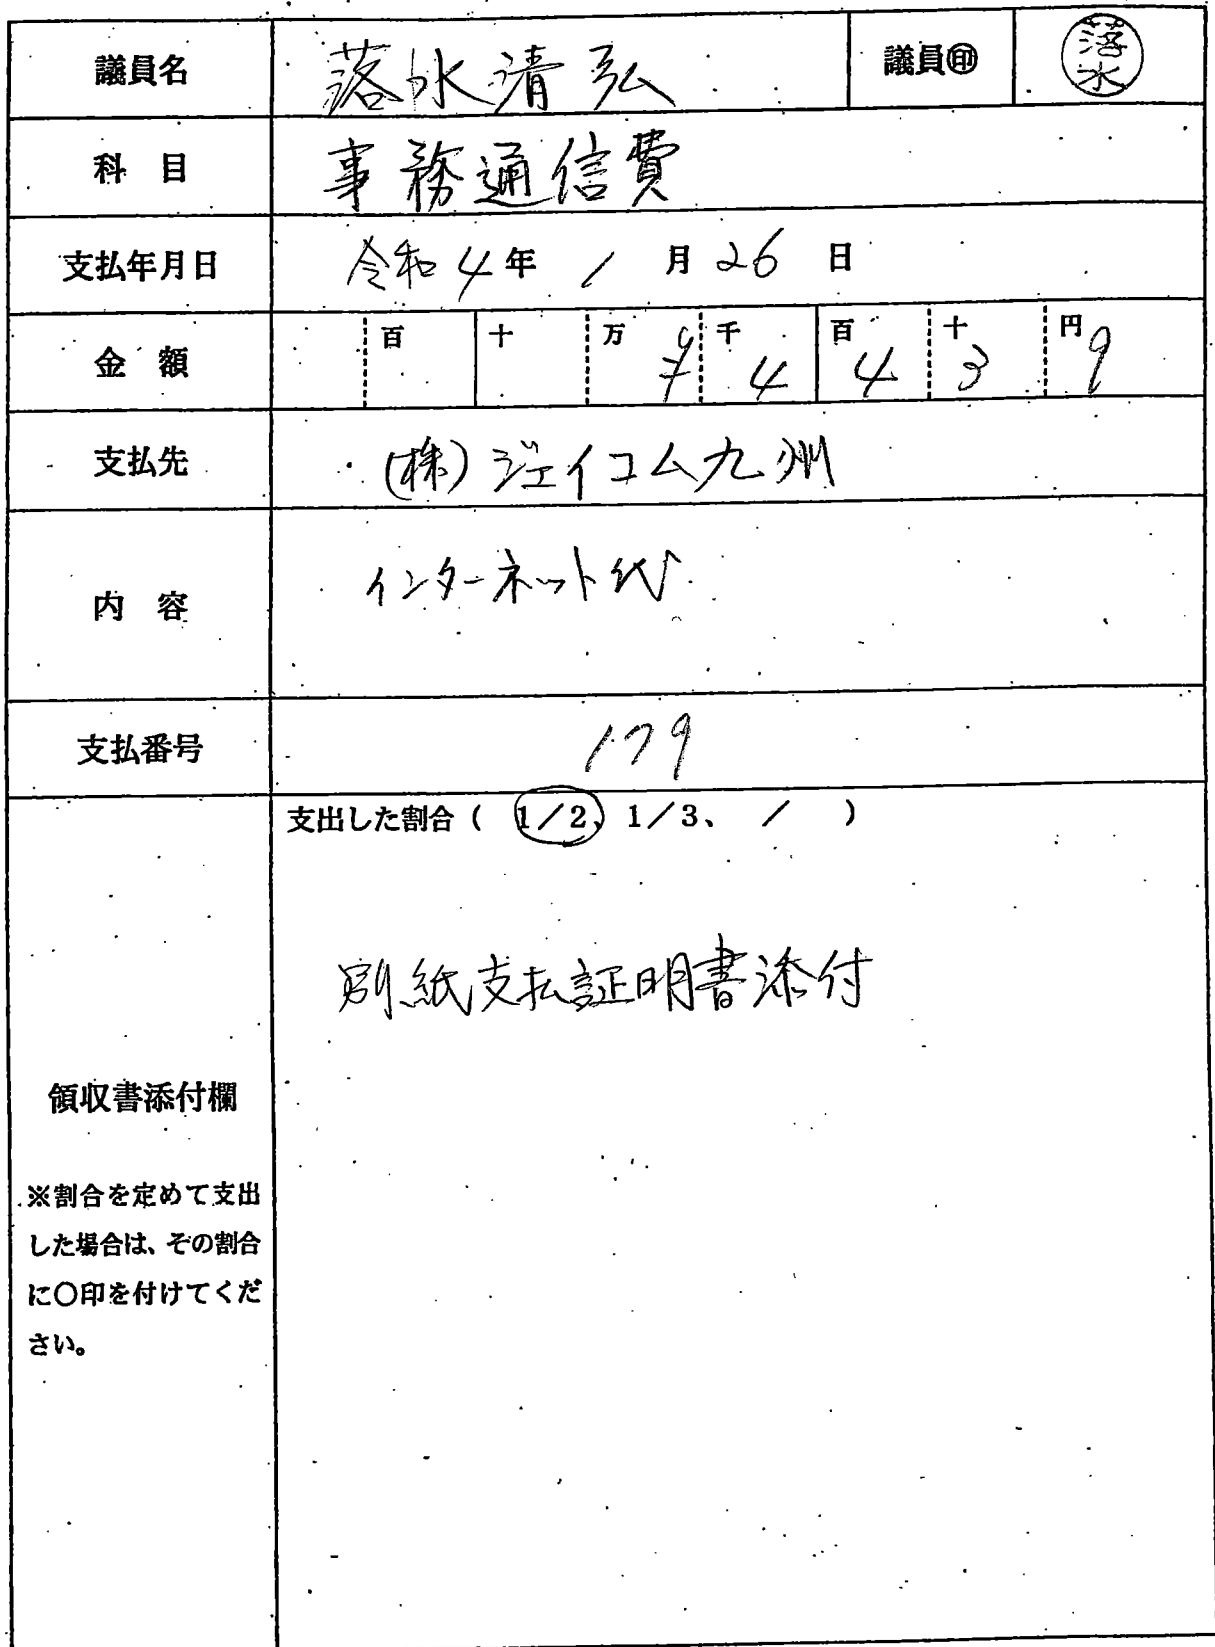 議員名 落水清弘 議員㊞ 落水
科 目 事務通信費
支払年月日 令和4年 1月26日
金 額 百 十 万 ¥ 千 4 百 4 十 3 円 9
支払先 (株)ジェイコム九州
内 容 インターネット代
支払番号 179
支出した割合( 1/2、1/3、 / )
別紙支払証明書添付
領収書添付欄
※割合を定めて支出
した場合は、その割合
に〇印を付けてくだ
さい。